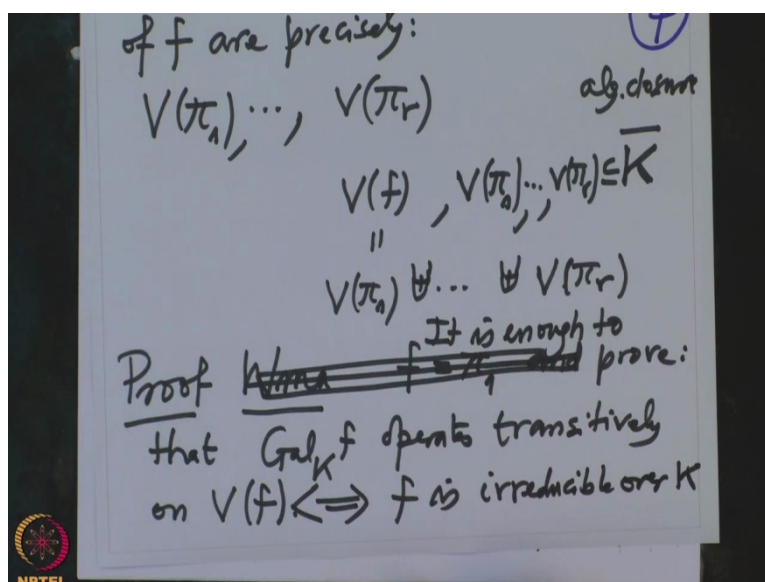 of f are precisely:
V(π₁), ..., V(πᵣ)
alg. closure
V(f), V(π₁), ..., V(πᵣ) ⊆ K̅
||
V(π₁) ⊎ ... ⊎ V(πᵣ)
It is enough to
Proof prove:
that Gal_K f operates transitively
on V(f) ⟺ f is irreducible over K
NPTEL